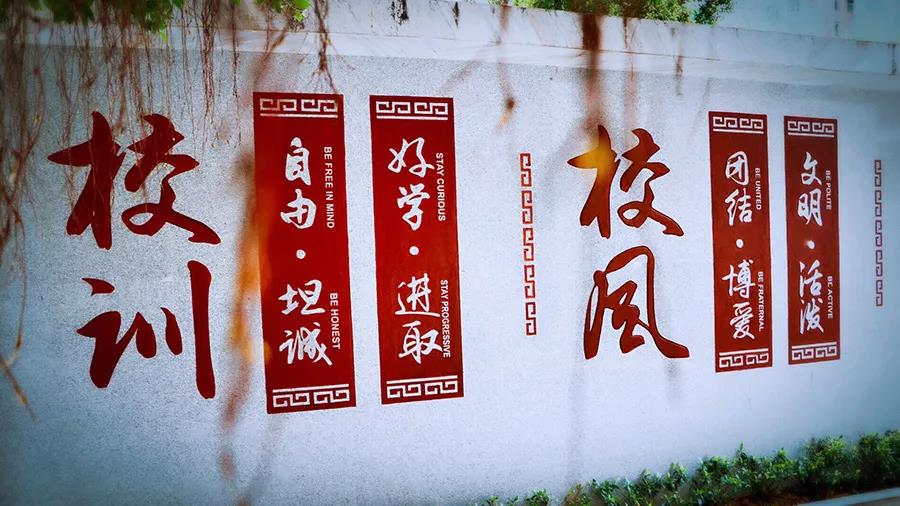 校训
自由·坦诚
BE FREE IN MIND
BE HONEST
好学·进取
STAY CURIOUS
STAY PROGRESSIVE
校风
团结·博爱
BE UNITED
BE FRATERNAL
文明·活泼
BE POLITE
BE ACTIVE